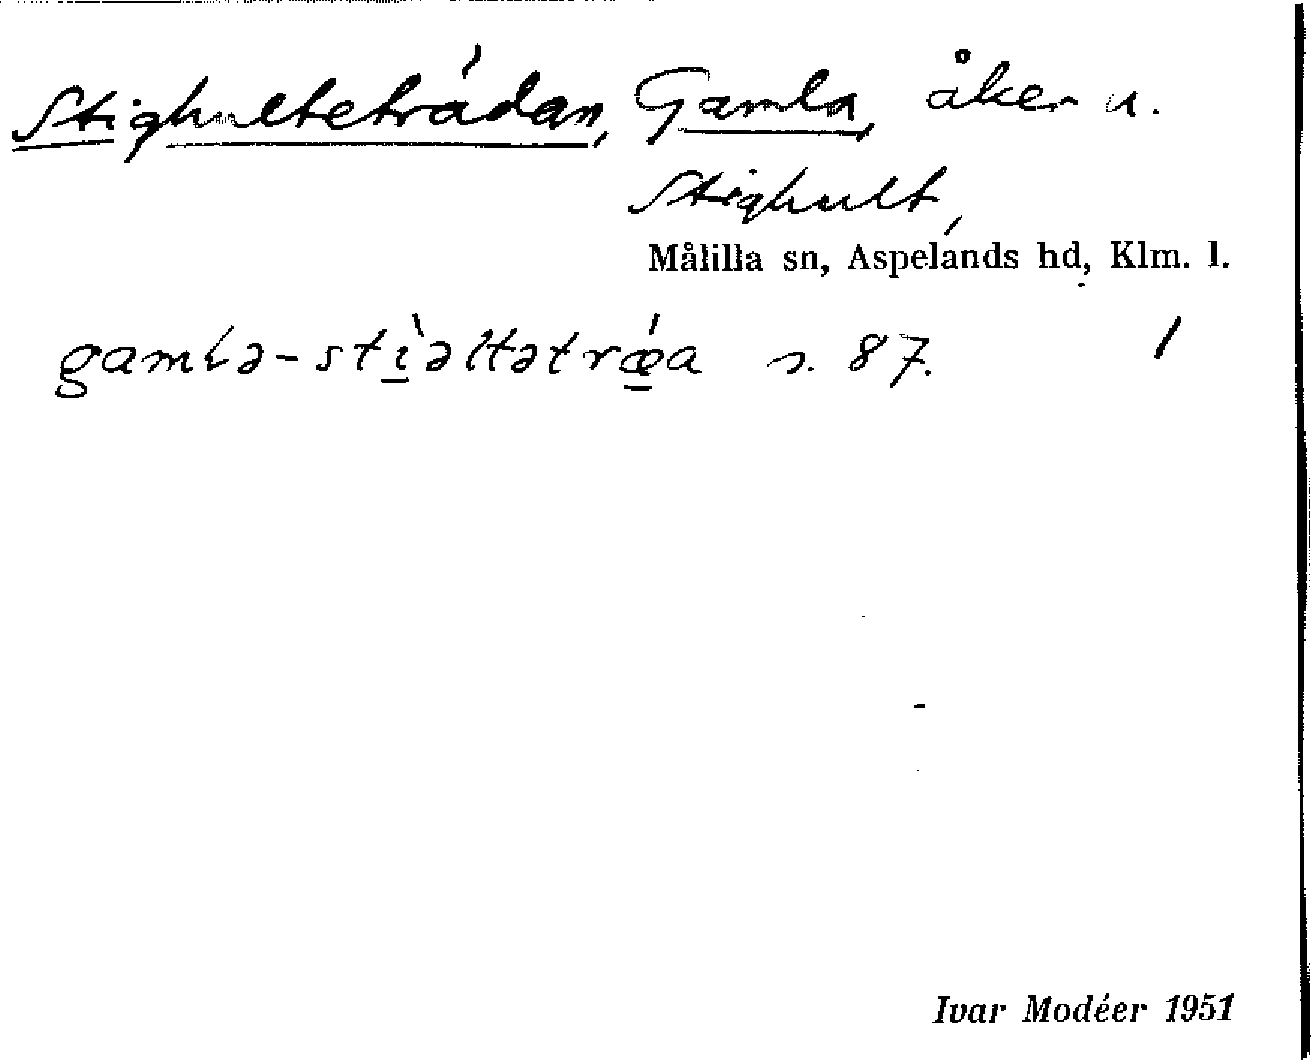 Stighulteträdan, Gamla, åker u.
Stighult,
Målilla sn, Aspelands hd, Klm. l.
gamla-stì̱əltətrǽ̱a s. 87. /
Ivar Modéer 1951